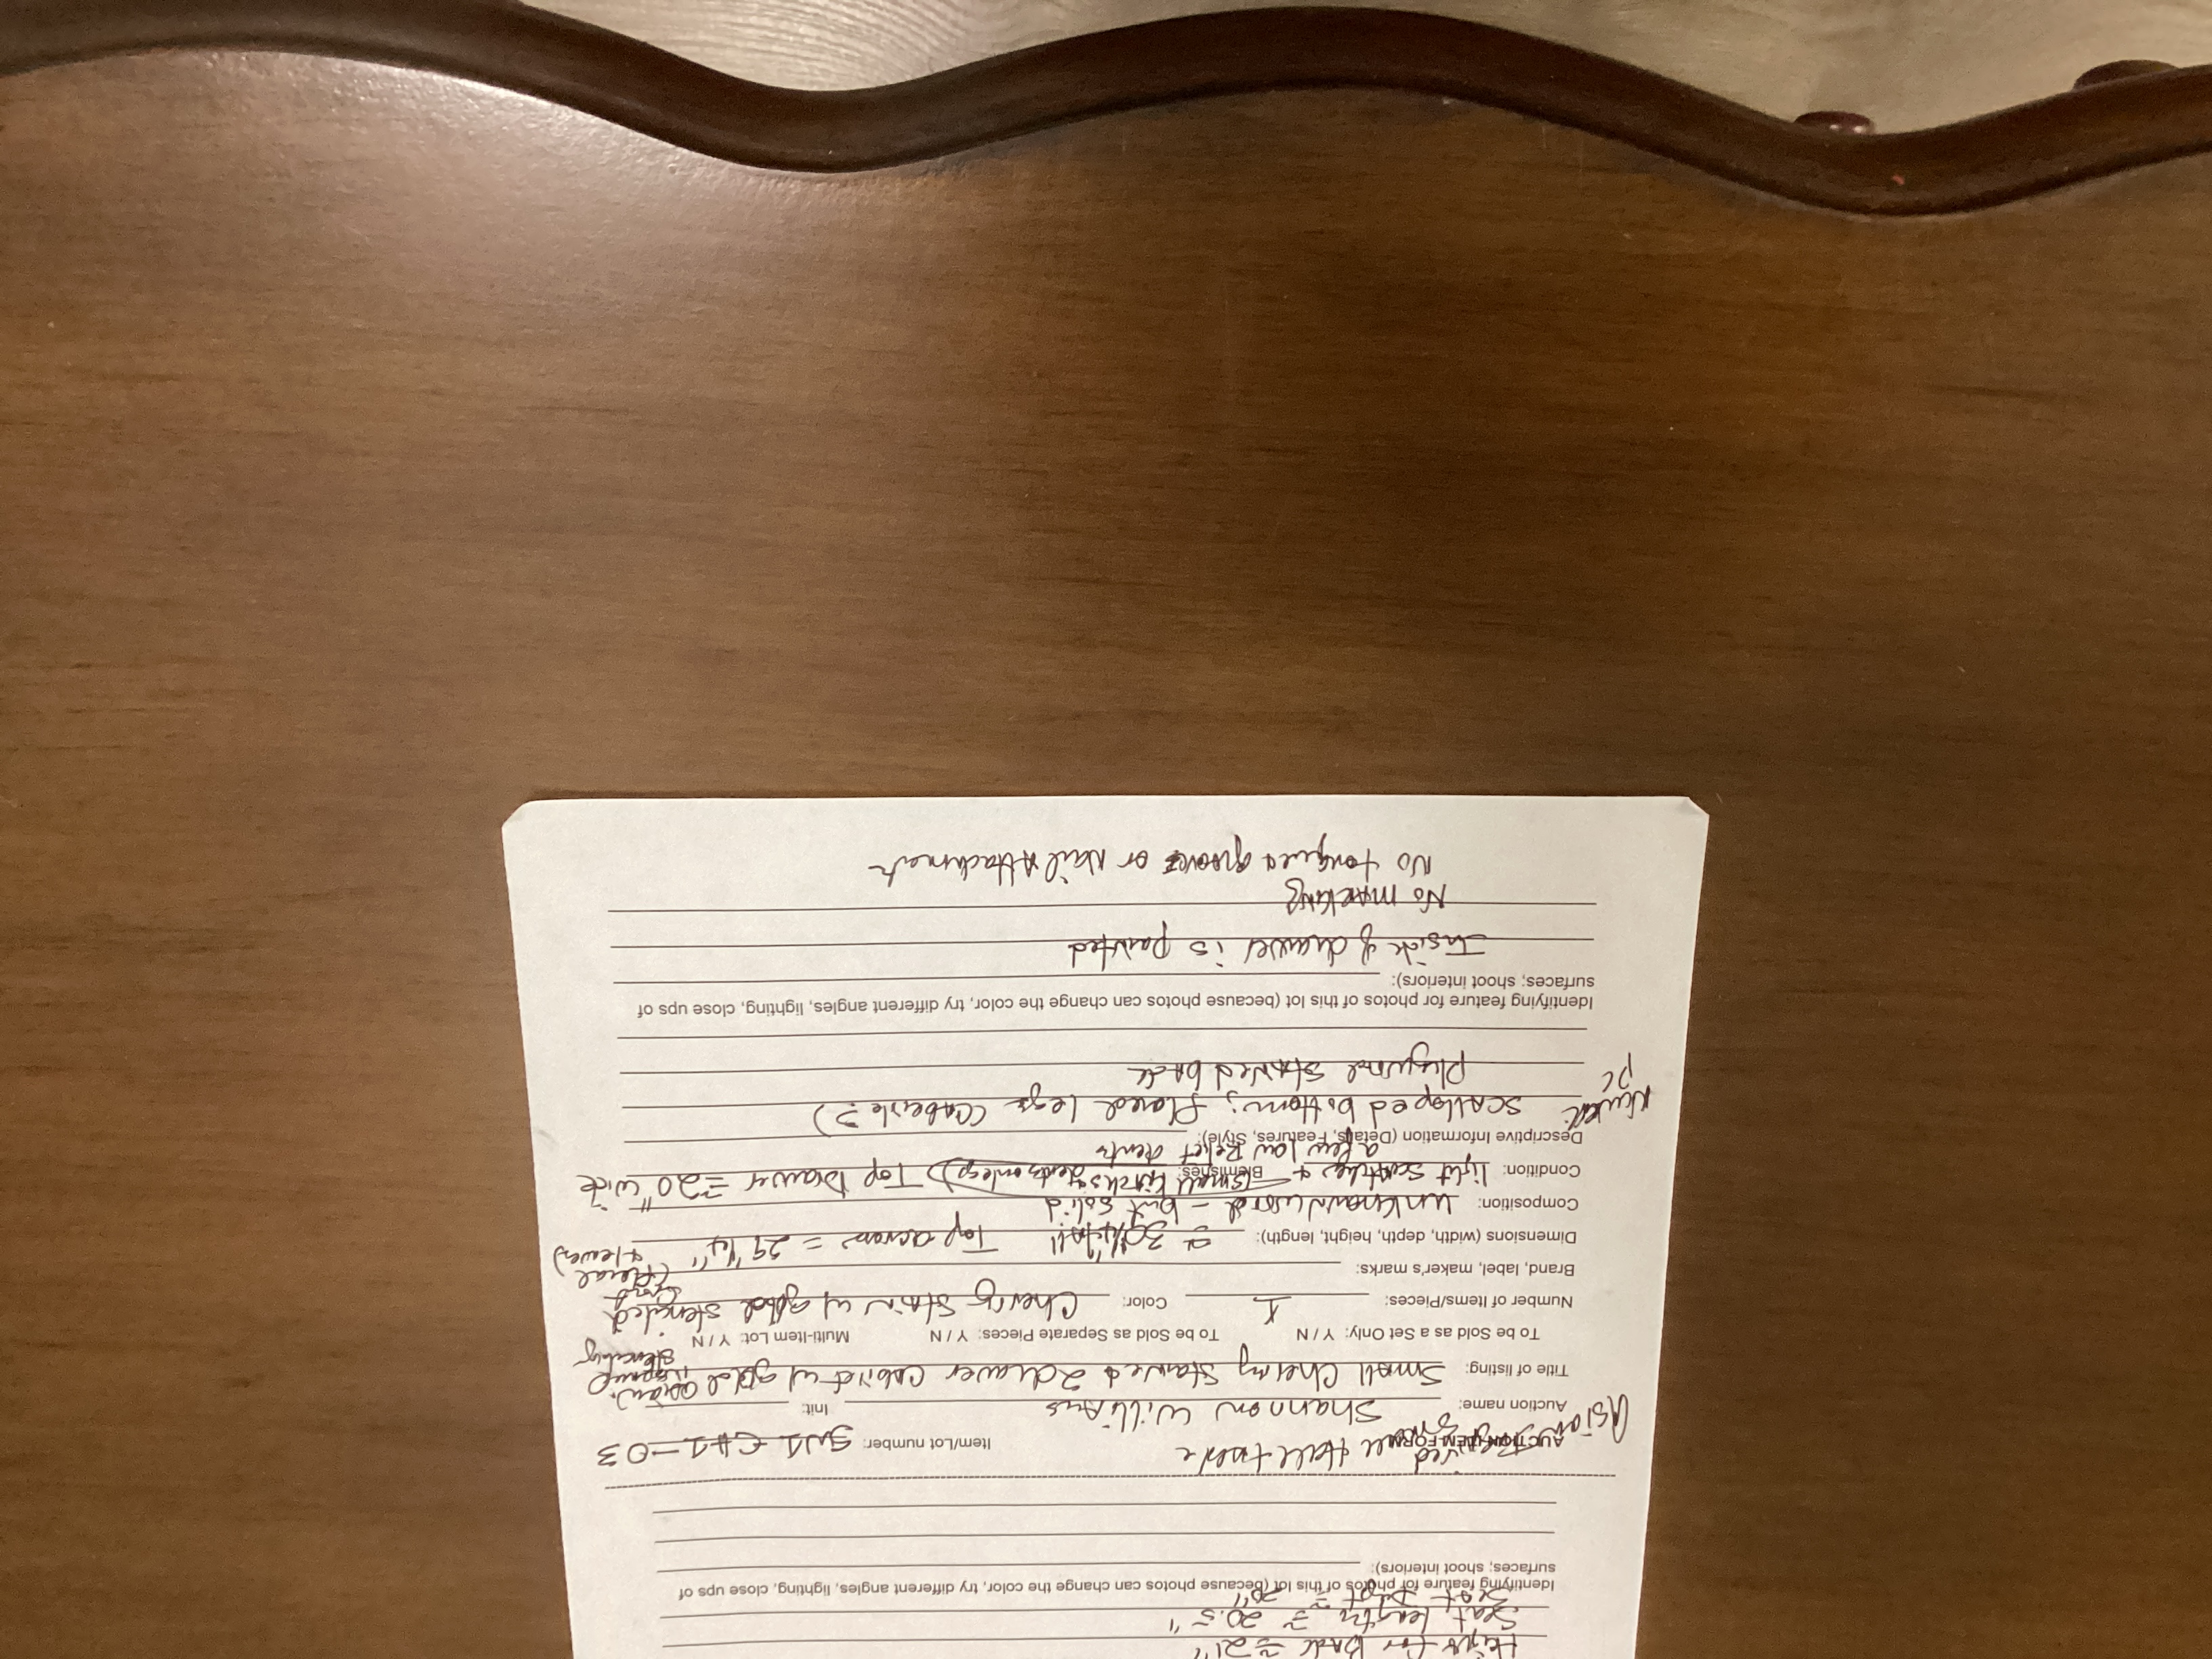 Height for Back ≅ 21"
Seat length ≅ 20.5"
Seat Dept ≅ 20"
Identifying feature for photos of this lot (because photos can change the color, try different angles, lighting, close ups of
surfaces; shoot interiors):
AUCTION ITEM FORM
Asian Inspired Small Hall Table
Item/Lot number: SW1 C#1-03
Auction name: Shannon Williams Init:
Title of listing: Small Cherry Stained 2 drawer Cabinet w/ gold Asian Inspired Stenciling
To be Sold as a Set Only: Y / N To be Sold as Separate Pieces: Y / N Multi-Item Lot: Y / N
Number of Items/Pieces: 1 Color: Cherry Stain w/ gold stenciled
(floral & leaves)
Brand, label, maker's marks:
Dimensions (width, depth, height, length): Top across = 29 1/4"
Composition: unknown wood - but solid
Condition: light scratches & Blemishes: Top Drawer ≅ 20" wide
a few low Relief dents
Descriptive Information (Details, Features, Style):
Scalloped bottom; flared legs (Cabriole?)
Plywood stained back
Identifying feature for photos of this lot (because photos can change the color, try different angles, lighting, close ups of
surfaces; shoot interiors):
Inside of drawer is painted
No marking
No tongue & groove or Nail Attachment